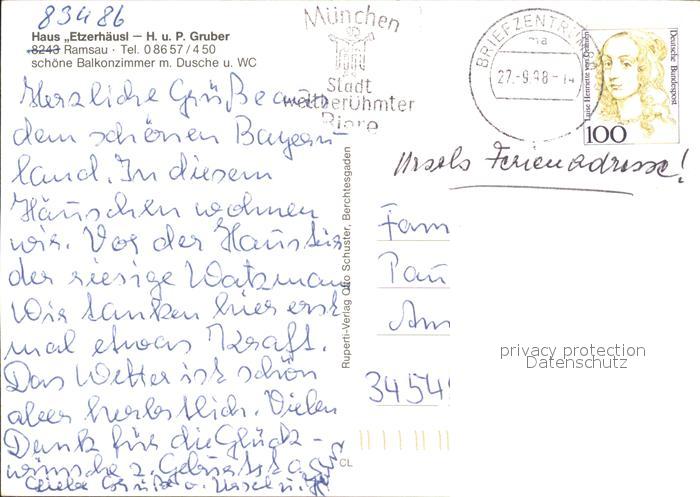 83486
Haus „Etzerhäusl – H. u. P. Gruber
8243 Ramsau · Tel. 08657/450
schöne Balkonzimmer m. Dusche u. WC
Herzliche Grüße aus
dem schönen Bayern-
land. In diesem
Häuschen wohnen
wir. Vor der Haustür
der riesige Watzmann
Wir tanken hier erst
mal etwas Kraft.
Das Wetter ist schön
aber herbstlich. Vielen
Dank für die Glück-
wünsche z. Geburtstag
Liebe Grüße v. Ursel u.
München
Stadt
weltberühmter
Biere
BRIEFZENTRUM
27.-9.98-14
Luise Henriette von Oranien
Deutsche Bundespost
100
Ursels Ferienadresse!
Fam
Pau
Am
3454
Ruperti-Verlag Otto Schuster, Berchtesgaden
CL
privacy protection
Datenschutz